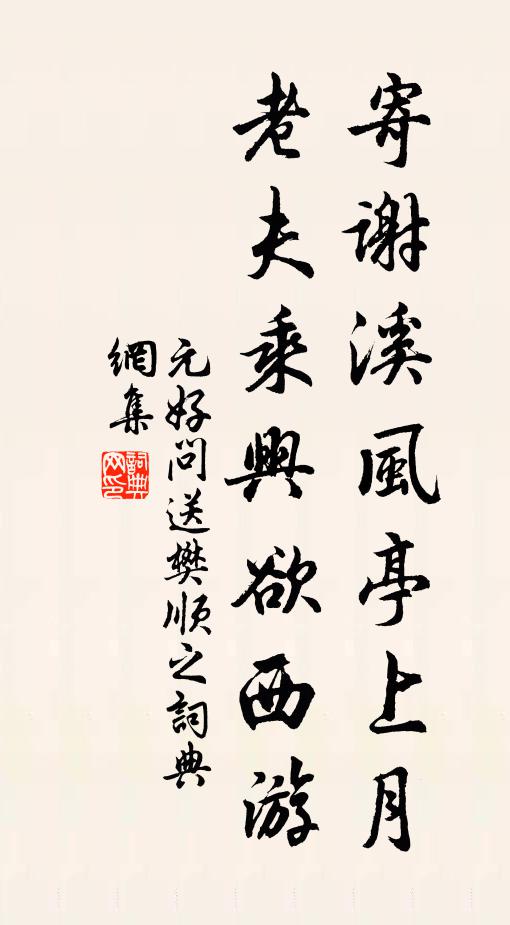 寄謝溪風亭上月
老夫乘興欲西游
元好問送樊順之詞典
網集
詞典
网印